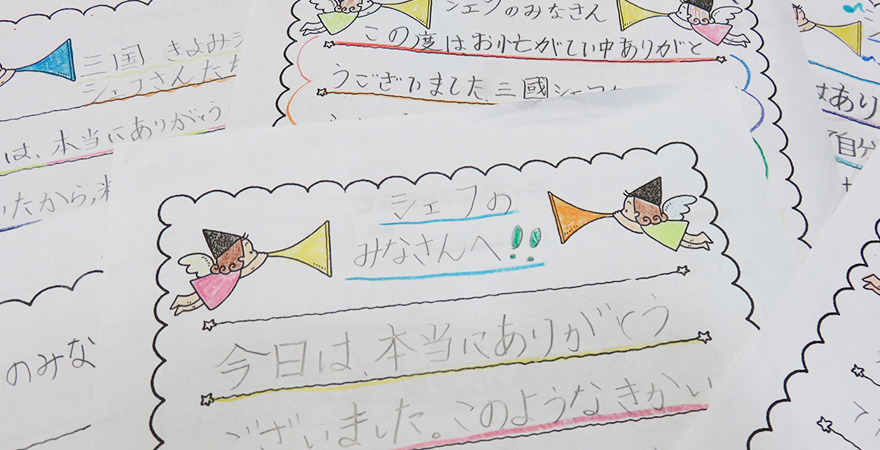 三國 きよみシ
シェフさんたち
は、本当にありがとう
たから、
シェフのみなさん
この度はお忙がしい中ありがと
うございました。三國シェフ
はあり
自分
シェフの
みなさんへ!!
今日は、本当にありがとう
ございました。このようなきかい
のみな